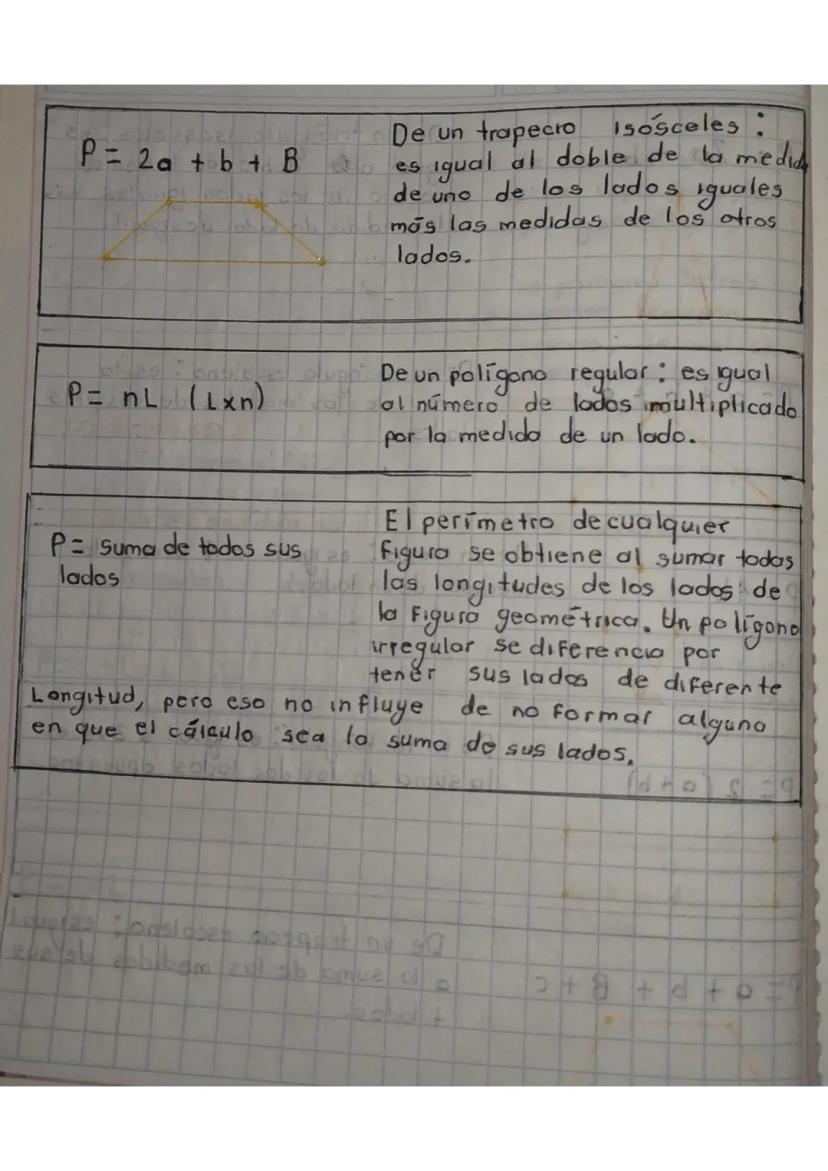 P = 2a + b + B
De un trapecio isósceles :
es igual al doble de la medid
de uno de los lados iguales
más las medidas de los otros
lados.
P = nL (L×n)
De un polígono regular : es igual
al número de lados multiplicado
por la medida de un lado.
P = suma de todos sus
lados
El perímetro de cualquier
Figura se obtiene al sumar todas
las longitudes de los lados de
la Figura geométrica. Un polígono
irregular se diferencia por
tener sus lados de diferente
Longitud, pero eso no influye de no formar alguna
en que el cálculo sea la suma de sus lados.